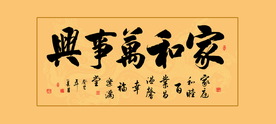 家和萬事興
家庭
和睦
百
業
馨
幸
福
樂滿
堂